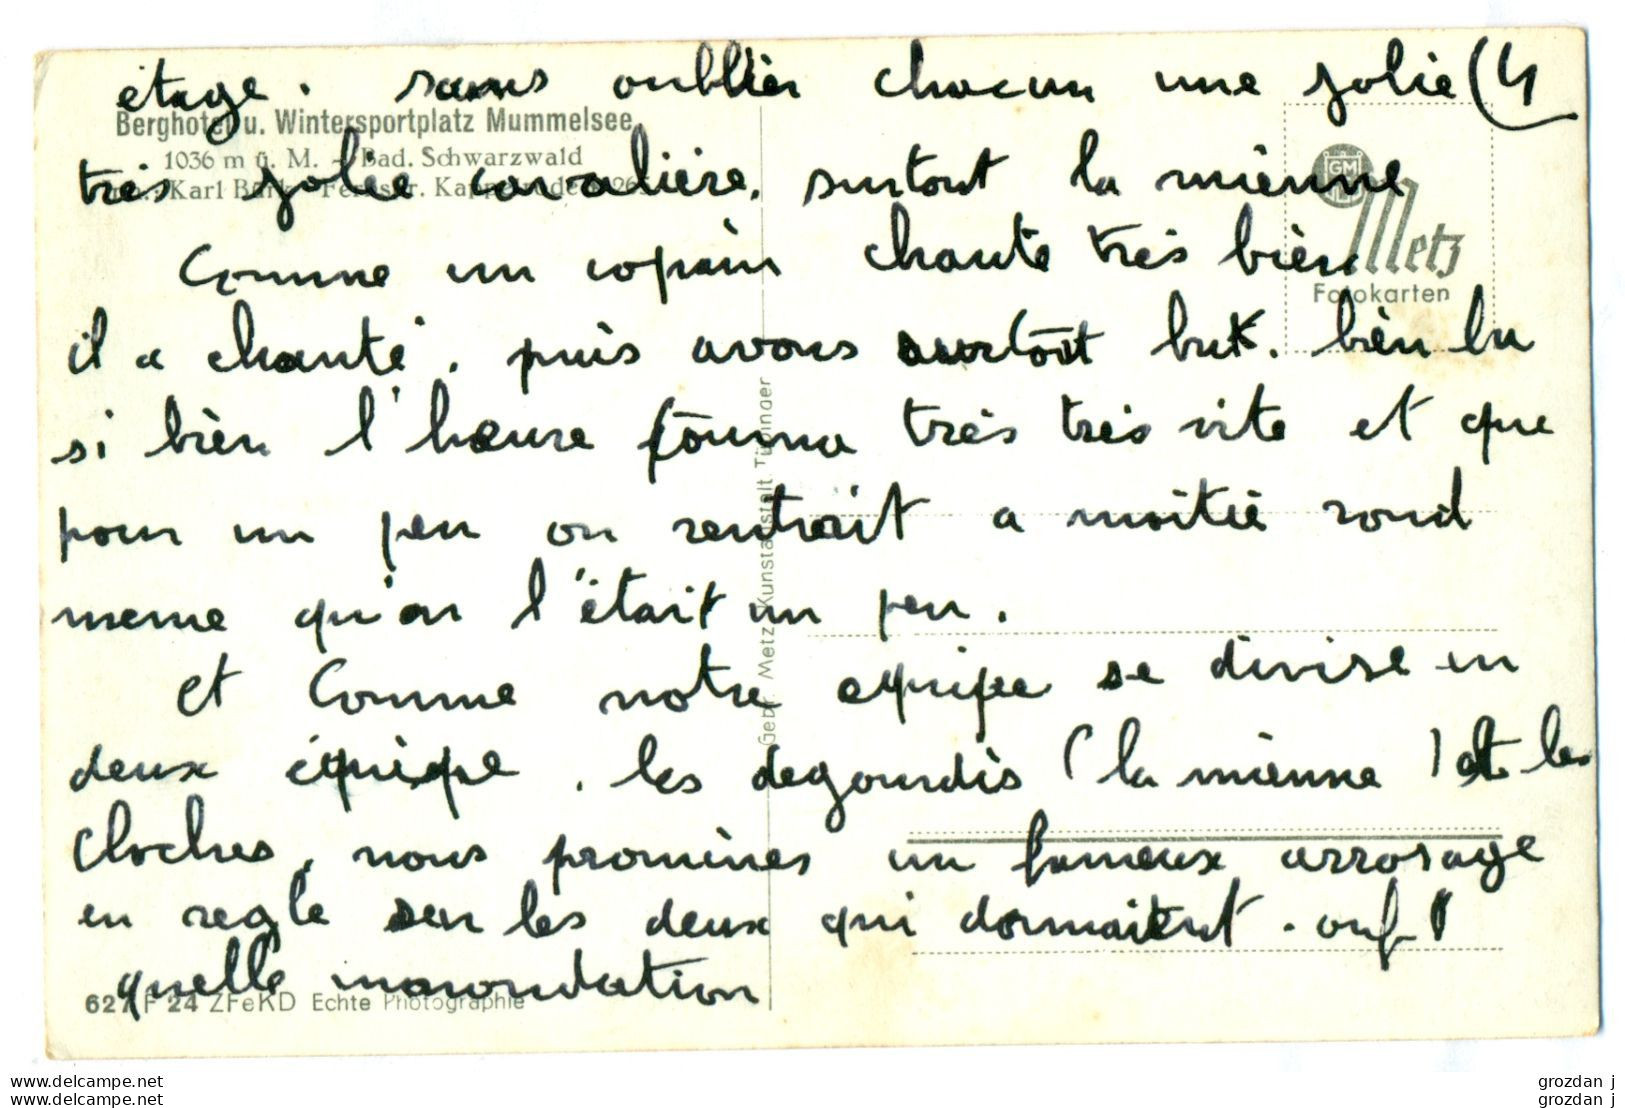 étage. sans oublier chacun une jolie (4
Berghotel u. Wintersportplatz Mummelsee
1036 m ü. M. - Bad. Schwarzwald
très jolie cavalière. surtout la mienne
Karl Fernspr. Kappelrodeck
GM
Metz
Fotokarten
Comme un copain chante très bien
il a chanté. puis avons surtout but. bien bu
si bien l'heure tourna très très vite et que
pour un peu on rentrait a moitié rond
meme qu'on l'était un peu.
et Comme notre equipe se divise en
deux équipe. les degourdis (la mienne) et les
cloches, nous promines un fameux arrosage
en regle sur les deux qui dormaient. ouf!
quelle inonondation
Gebr. Metz Kunstanstalt Tübingen
627 F 24 ZFeKD Echte Photographie
www.delcampe.net
www.delcampe.net
grozdan j
grozdan j